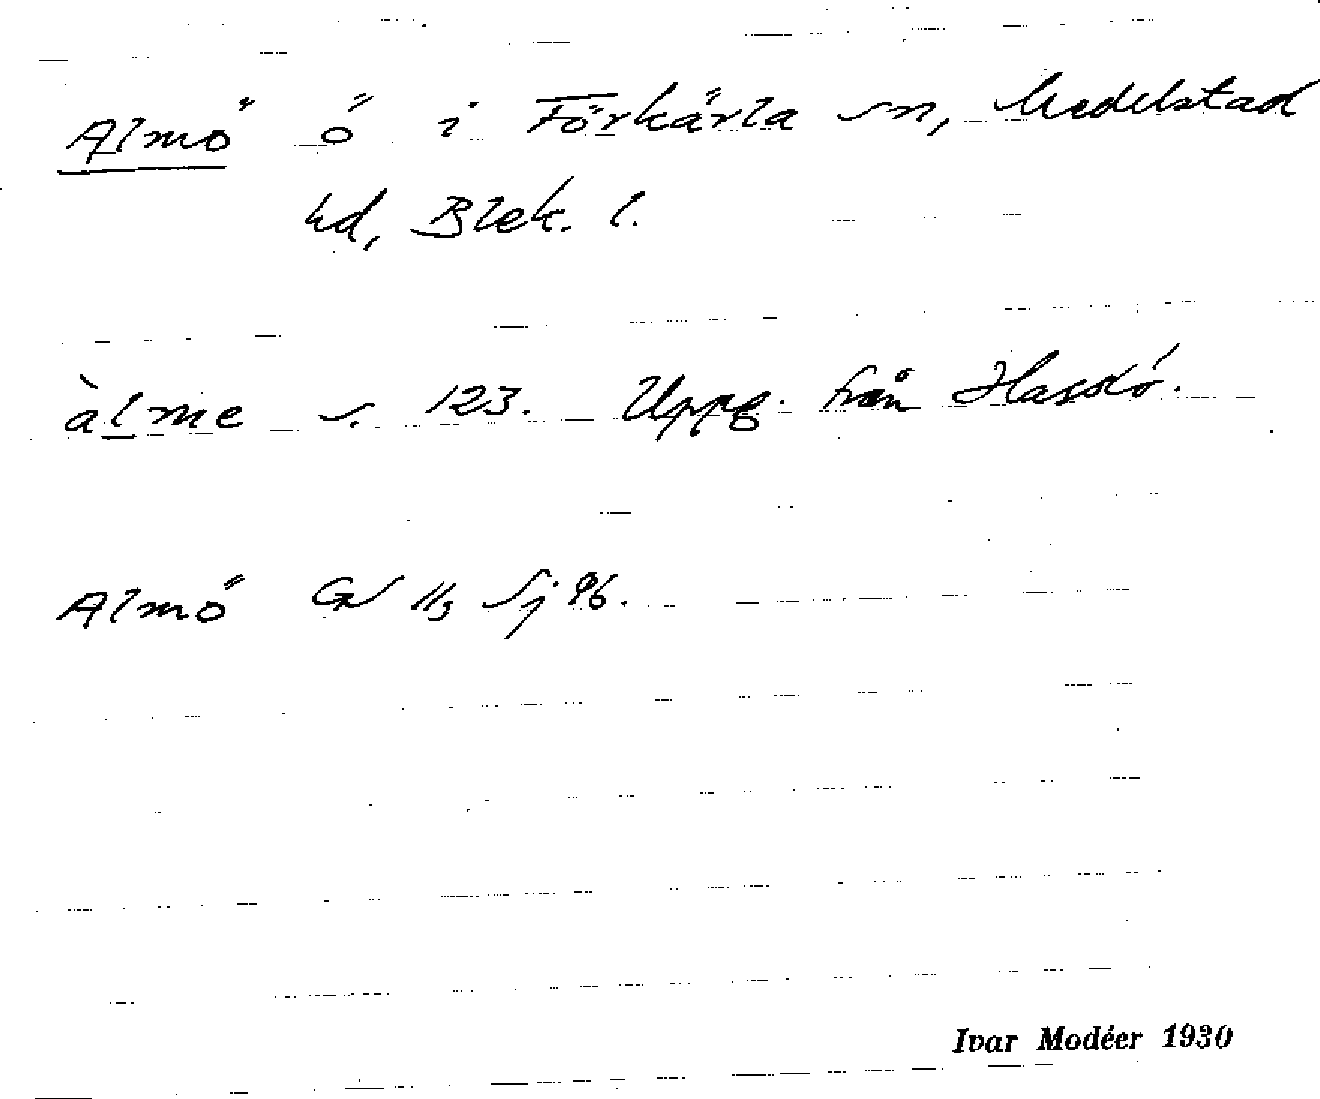 Almö ö i Förkärla sn, Medelstad
hd, Blek. l.
àlme s. 123. Uppg. från Hasslö.
Almö GV Sj 96.
Ivar Modéer 1930